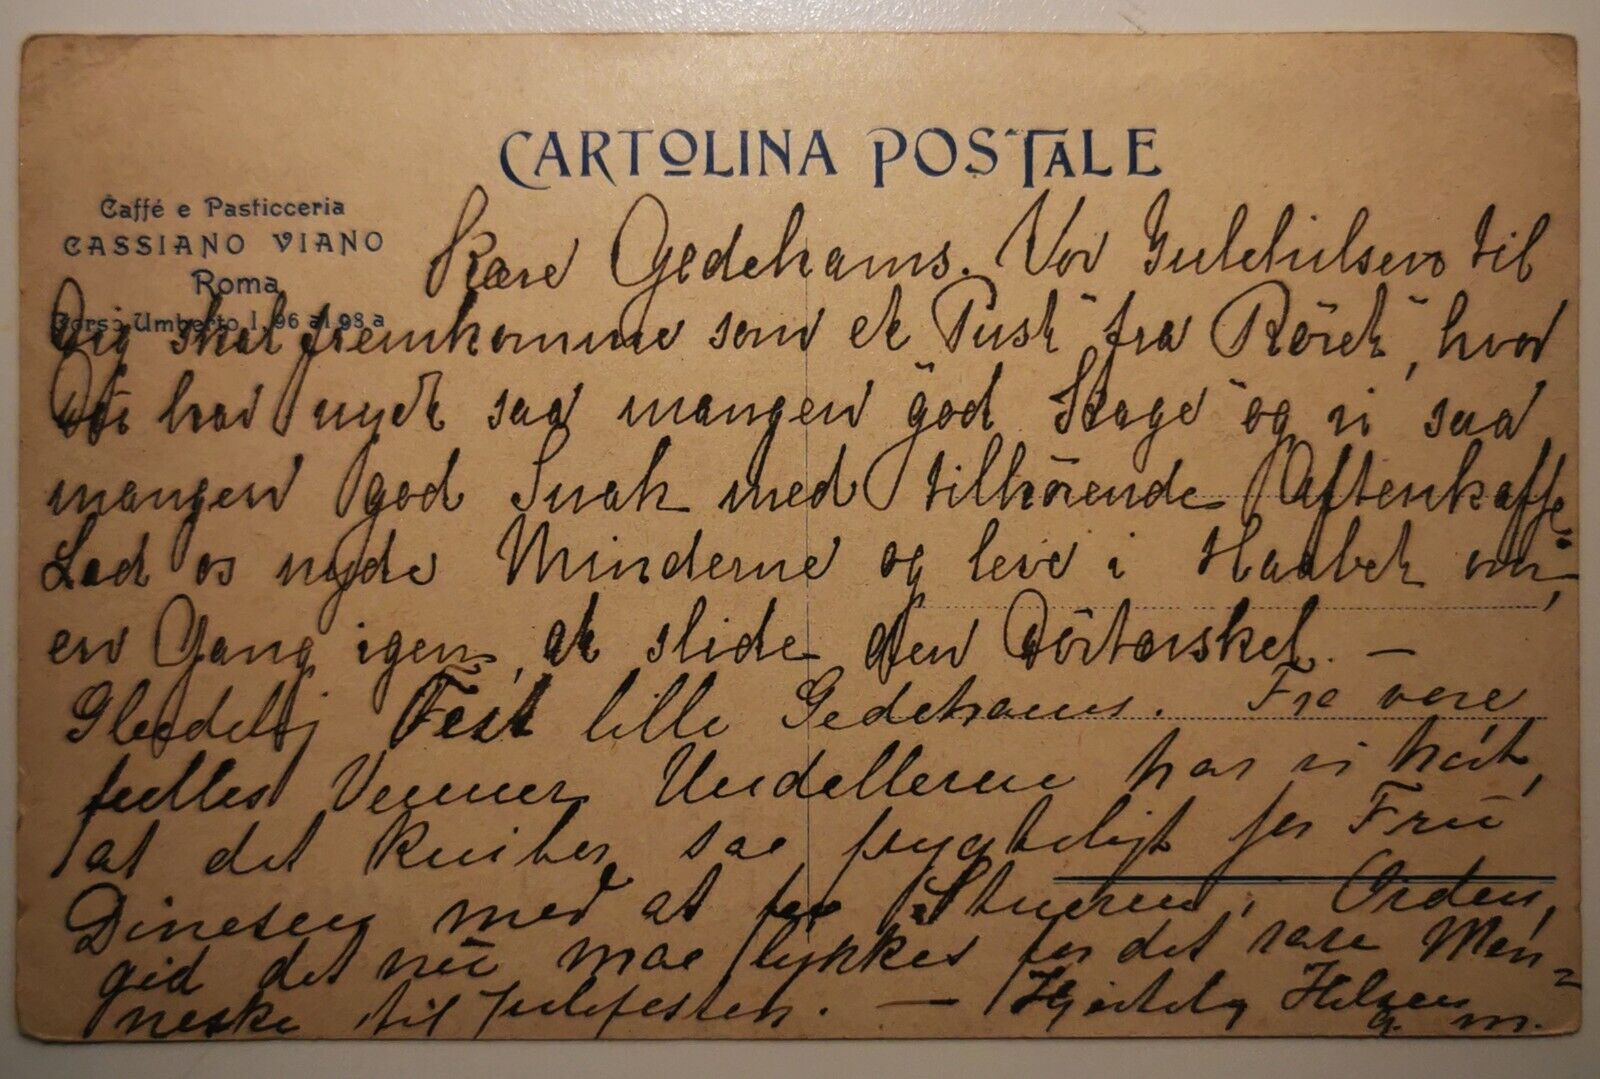 CARTOLINA POSTALE
Caffé e Pasticceria
CASSIANO VIANO
Roma
Corso Umberto I, 96 al 98 a
Kære Gedehams. Vor Julehilsen til
Dig skal fremkomme som et "Pust" fra "Röret", hvor
Vi har nydt saa mangen "god Kage" og vi saa
mangen god Snak med tilhörende Aftenkaffe.
Lad os nyde Minderne og leve i Haabet om,
en Gang igen, at slide den Dörtærskel. —
Glædelig Fest lille Gedehams. Fra vore
fælles Venner Uldallerne har vi hört,
at det kniber saa frygteligt for Frü
Dinesen med at faa Stuerne i Orden,
gid det nü maa lykkes for det rare Men=
neske til Julefesten. — Hjertelig Hilsen
m.